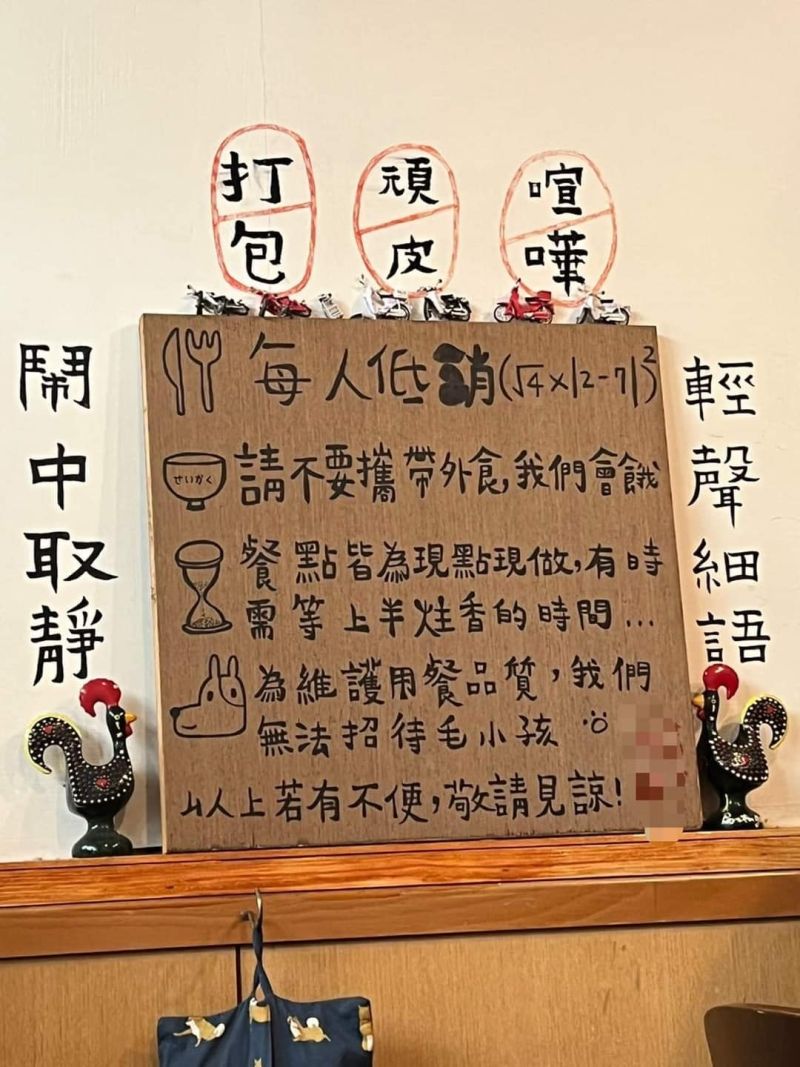 打包
頑皮
喧嘩
鬧中取靜
每人低銷(√4×|2-7|²)
せいかく
請不要攜帶外食,我們會餓
餐點皆為現點現做,有時
需等上半炷香的時間...
為維護用餐品質,我們
無法招待毛小孩
以上若有不便,敬請見諒!
輕聲細語